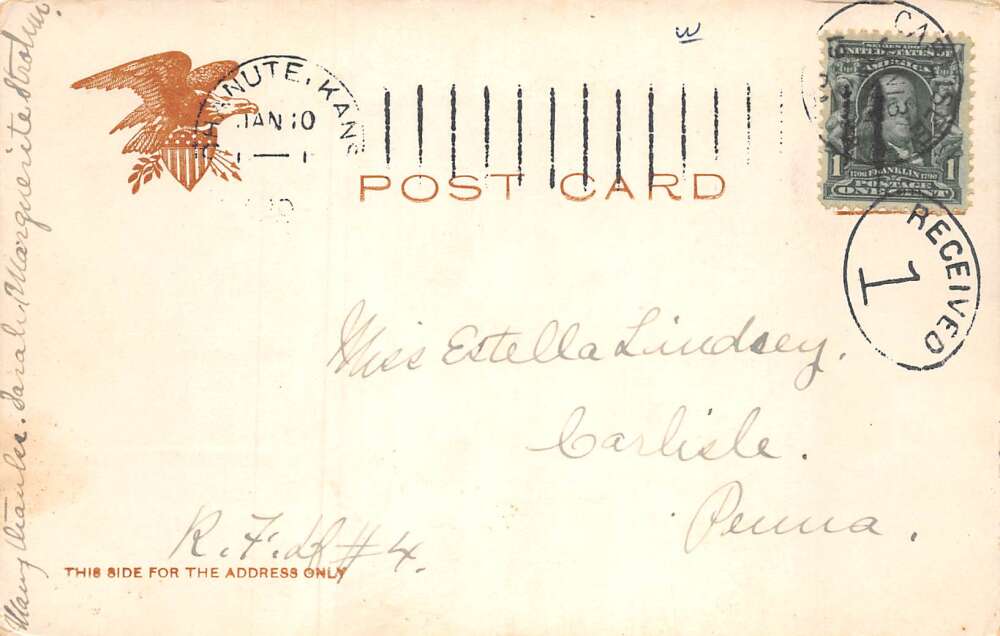 Many thanks. Sarah Marguerite Strohm.
w
CHANUTE, KANS
JAN 10
SERIES 1902
UNITED STATES OF
AMERICA
1 1706 FRANKLIN 1790 1
POSTAGE
ONE CENT
POST CARD
RECEIVED
1
Miss Estella Lindsey.
Carlisle.
Penna.
R.F.D #4.
THIS SIDE FOR THE ADDRESS ONLY